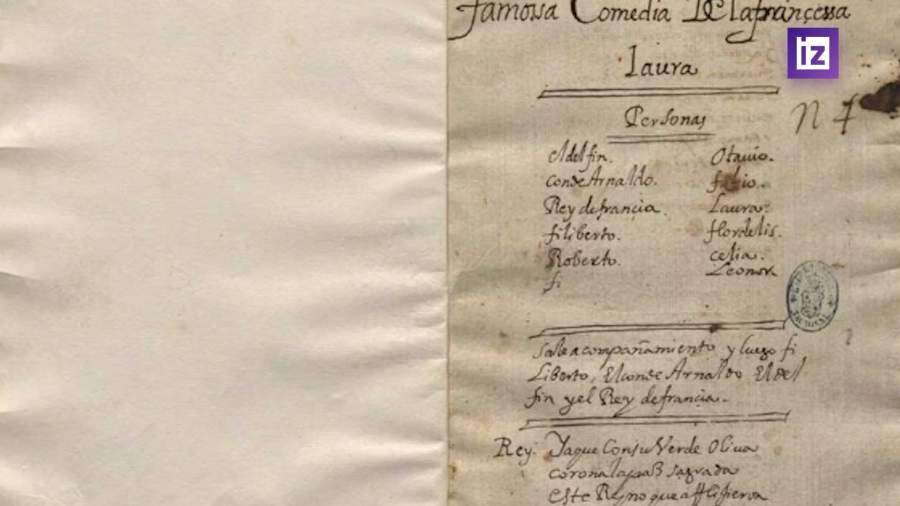 famossa Comedia DE la françessa
Laura
iz
Personas
N 7
el delfin.
conde Arnaldo.
Rey de françia.
filiberto.
Roberto.
fi
Otauio.
fabio.
Laura.
flordelis.
celia.
Leonora
Sale acompañamiento y luego fi
Liberto, El conde Arnaldo El del
fin y el Rey de françia.
Rey. Ya que Con su Verde Oliua
corona la paz sagrada
este Reyno que affligieron